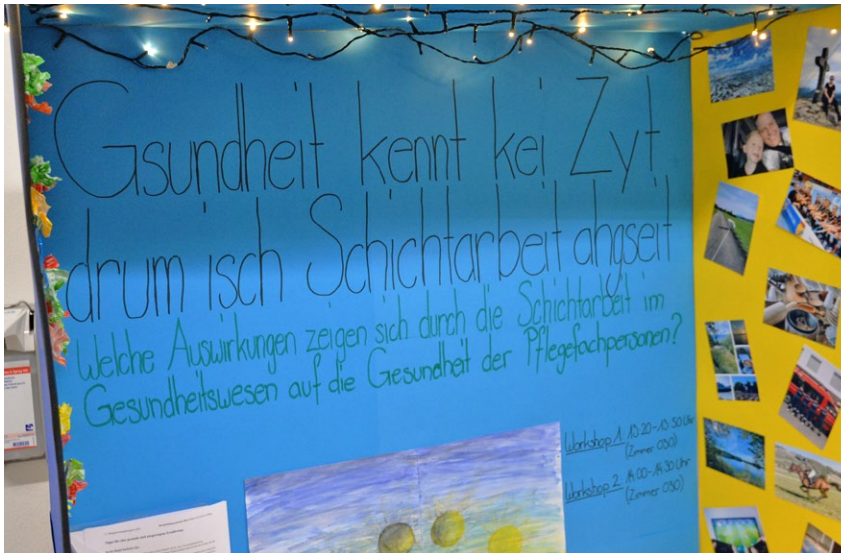 Gsundheit kennt kei Zyt
drum isch Schichtarbeit ahgseit
Welche Auswirkungen zeigen sich durch die Schichtarbeit im
Gesundheitswesen auf die Gesundheit der Pflegefachpersonen?
Workshop 1: 10.20-10.50 Uhr
(Zimmer 030)
Workshop 2: 14.00-14.30 Uhr
(Zimmer 030)